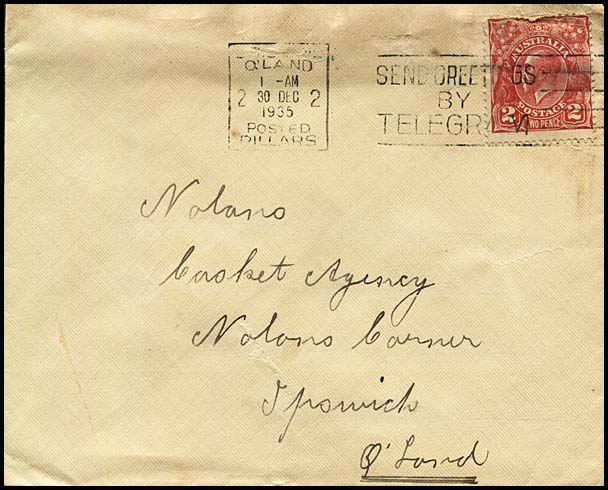 Q'LAND
1 -AM
2 30 DEC 2
1935
POSTED
PILLARS
SEND GREETINGS
BY
TELEGRAM
AUSTRALIA
POSTAGE
2 TWO PENCE 2
Nolans
Casket Agency
Nolans Corner
Ipswich
Q'Land